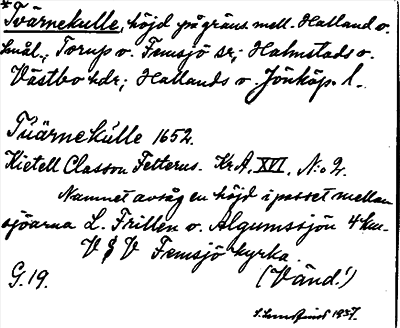 *Tvärnekulle, höjd på gräns. mell. Halland o.
Smål., Torup o. Femsjö sr; Halmstads o.
Västbo hdr; Hallands o. Jönköp. l.
Tuärnekulle 1652.
Kietell Classon Felterus. Kr.A. XVI, N:o 2.
Namnet avsåg en höjd i passet mellan
sjöarna L. Frillen o. Algumssjön 4 km.
V § V Femsjö kyrka.
G. 19. (Vänd!)
1937.